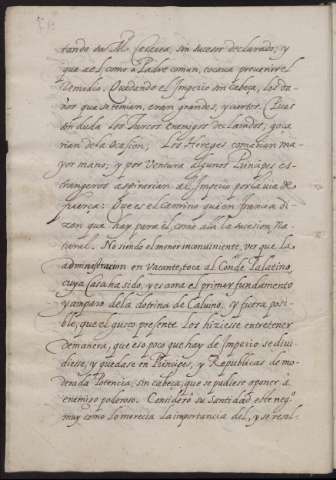 tando su Md. faltara, sin sucesor declarado; y
que a el, como a Padre comun, tocaua preuenir el
remedio. Quedando el Imperio sin cabeça, los da-
ños que se temian, eran grandes, y ciertos. Pues
sin duda los Turcos enemigos declarados, goça-
rian de la ocasion; Los Hereges tomarian ma-
yor mano; y por ventura algunos Principes es-
trangeros aspirarian al Imperio por la via de
fuerça: Que es el camino que en francia di-
zen que hay para el, como alla la eleccion Na-
tional. No siendo el menor inconuiniente, ver que la
administracion en vacante, toca al Conde Palatino,
cuya Casa ha sido, y es aora el primer fundamento
y amparo de la dotrina de Caluino. Y fuera posi-
ble, que el gusto presente los hiziesse entretener
de manera, que eso poco que hay de Imperio se diui-
diesse, y quedase en Principes, y Republicas de mo-
derada Potencia, sin cabeça, que se pudiese oponer a
enemigo poderoso. Consideró su Santidad este nego.
muy como lo merecia la importancia del, y se resol-